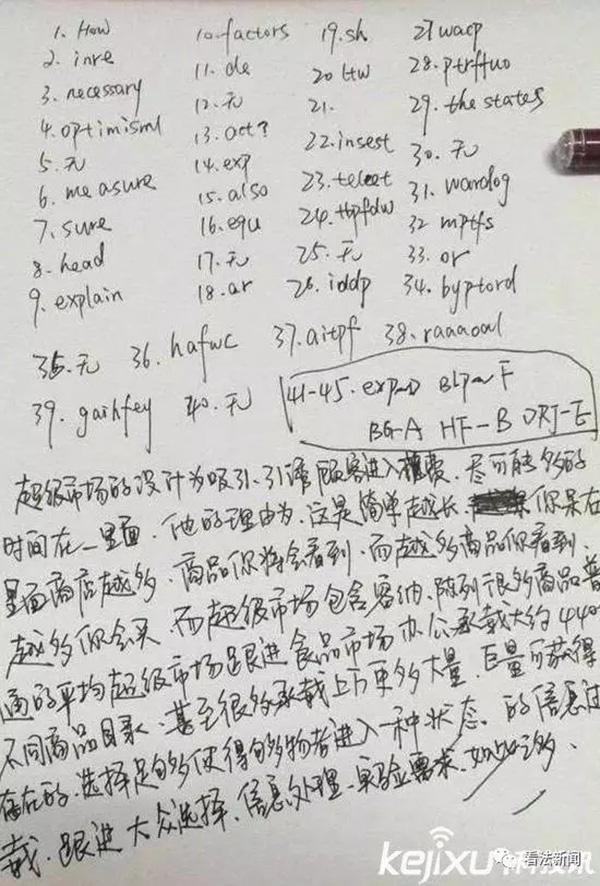 1. How 10. factors 19. sh 27 wacp
2. inre 11. de 20 ltw 28. ptrftuo
3. necessary 12. 无 21. 29. the states
4. optimisml 13. act? 22. insest 30. 无
5. 无 14. exp 23. teleet 31. wardog
6. measure 15. also 24. 32 mptfs
7. sure 16. equ 25. 无 33. or
8. head 17. 无 26. iddp 34. byptord
9. explain 18. ar
35. 无 36. hafwc 37. aitpf 38. raaaoal
39. gaihfey 40. 无 41-45. F
BG-A HF-B DRJ-E
超级市场的设计为吸引.引诱顾客进入 尽可能多的
时间在一里面. 他的理由为.这是简单越长. 你呆在
里面商店越多.商品你将会看到.而越多商品你看到.
越多你会买.而超级市场包含容纳.陈列很多商品普
通的平均超级市场跟进食品市场办公承载大约440
不同商品目录.甚至很多承载上万更多大量.巨量可获得
存在的.选择足够多使得购物者进入一种状态.的信息过
载.跟进大众选择.信息处理.实验需求.如此之多.
看法新闻
kejixu
科技讯